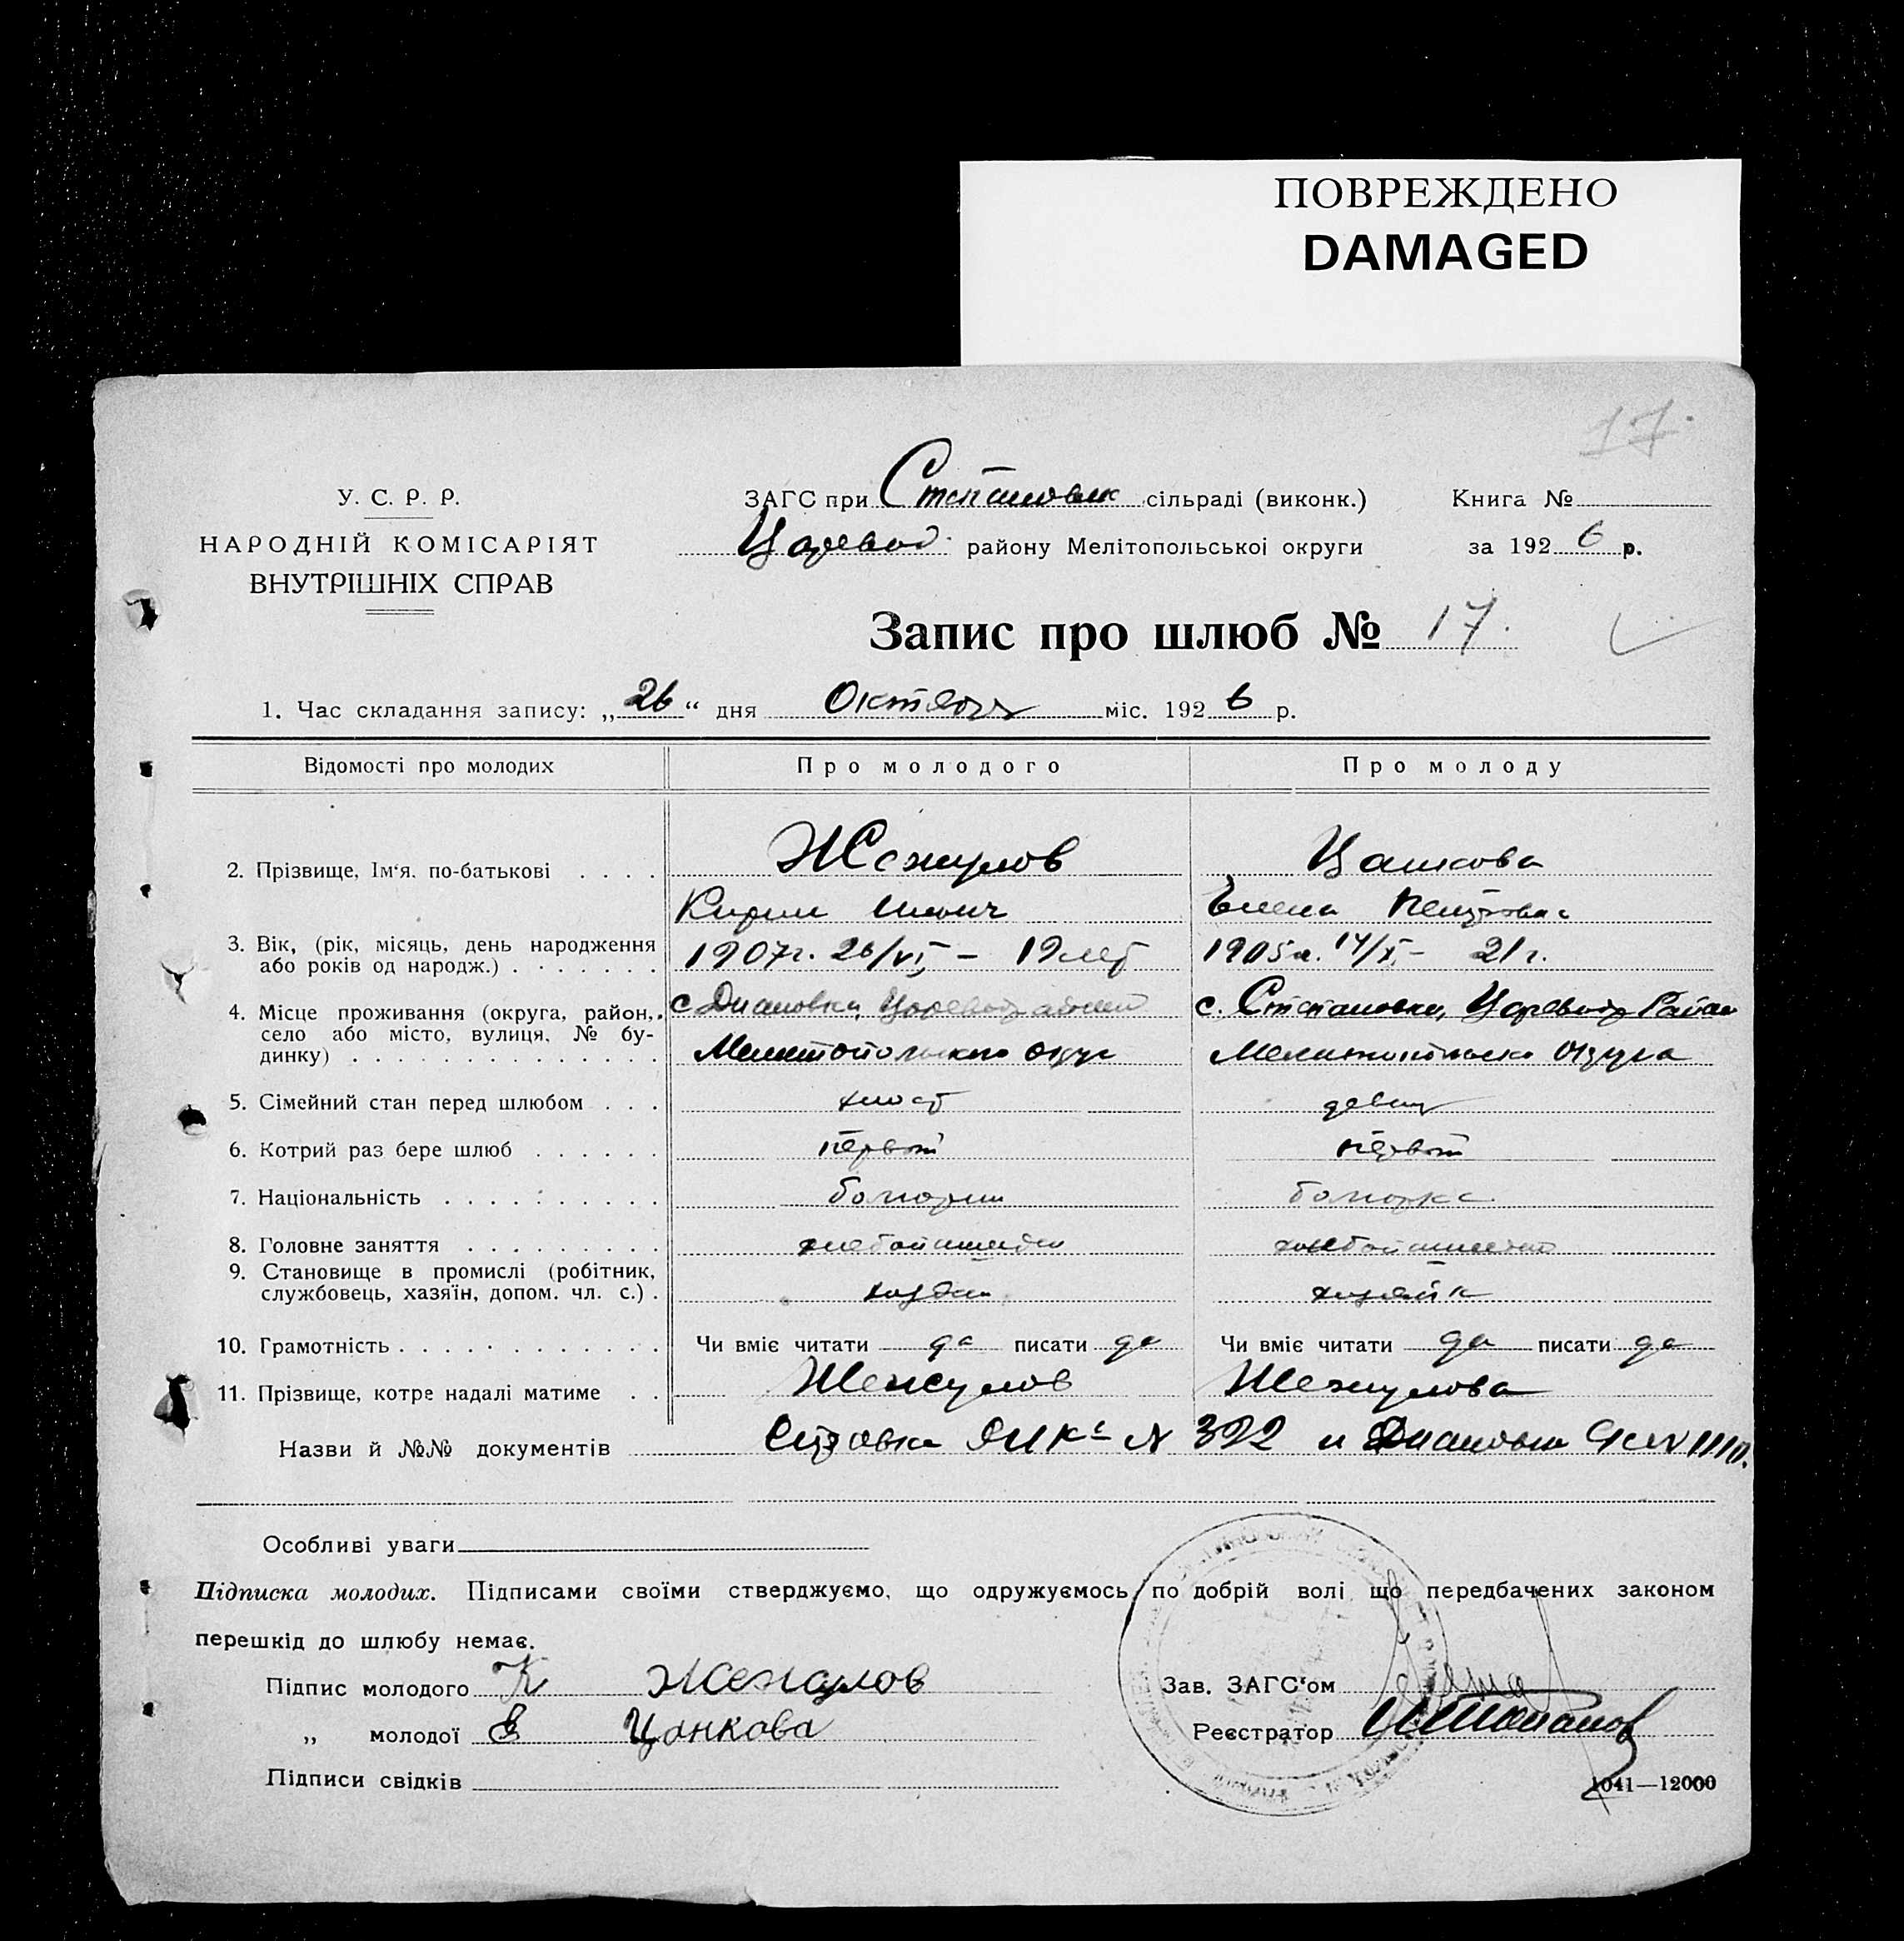 ПОВРЕЖДЕНО
DAMAGED
17.
У. С. Р. Р.
НАРОДНІЙ КОМІСАРІЯТ
ВНУТРІШНІХ СПРАВ
ЗАГС при Степановск сільраді (виконк.)
Царевод. району Мелітопольської округи
Книга №
за 1926 р.
Запис про шлюб № 17.
1. Час складання запису: „26“ дня Октября міс. 1926 р.
Відомості про молодих Про молодого Про молоду
2. Прізвище, Ім'я, по-батькові Жежулов Цанкова
Кирил Елена Петровна
3. Вік, (рік, місяць, день народження 1907г. 26/VI, – 19 лет 1905г. 14/X, – 21 г.
або років од народж.)
4. Місце проживання (округа, район, с. Диановка, Царевод района с. Степановка, Царевод Район
село або місто, вулиця, № бу-
динку) Мелитопольского округ Мелитопольск округа
5. Сімейний стан перед шлюбом холост девица
6. Котрий раз бере шлюб первый первый
7. Національність болгарин болгарка
8. Головне заняття хлебопашество хлебопашество
9. Становище в промислі (робітник,
службовець, хазяїн, допом. чл. с.) хозяин хозяйка
10. Грамотність Чи вміє читати да писати да Чи вміє читати да писати да
11. Прізвище, котре надалі матиме Жежулов Жежулова
Назви й №№ документів Справка № 392 и Диановка 1110.
Особливі уваги
Підписка молодих. Підписами своїми стверджуємо, що одружуємось по добрій волі що передбачених законом
перешкід до шлюбу немає.
Підпис молодого К Жежулов
„ молодої Е Цонкова
Підписи свідків
Зав. ЗАГС'ом
Реєстратор
1041—12000